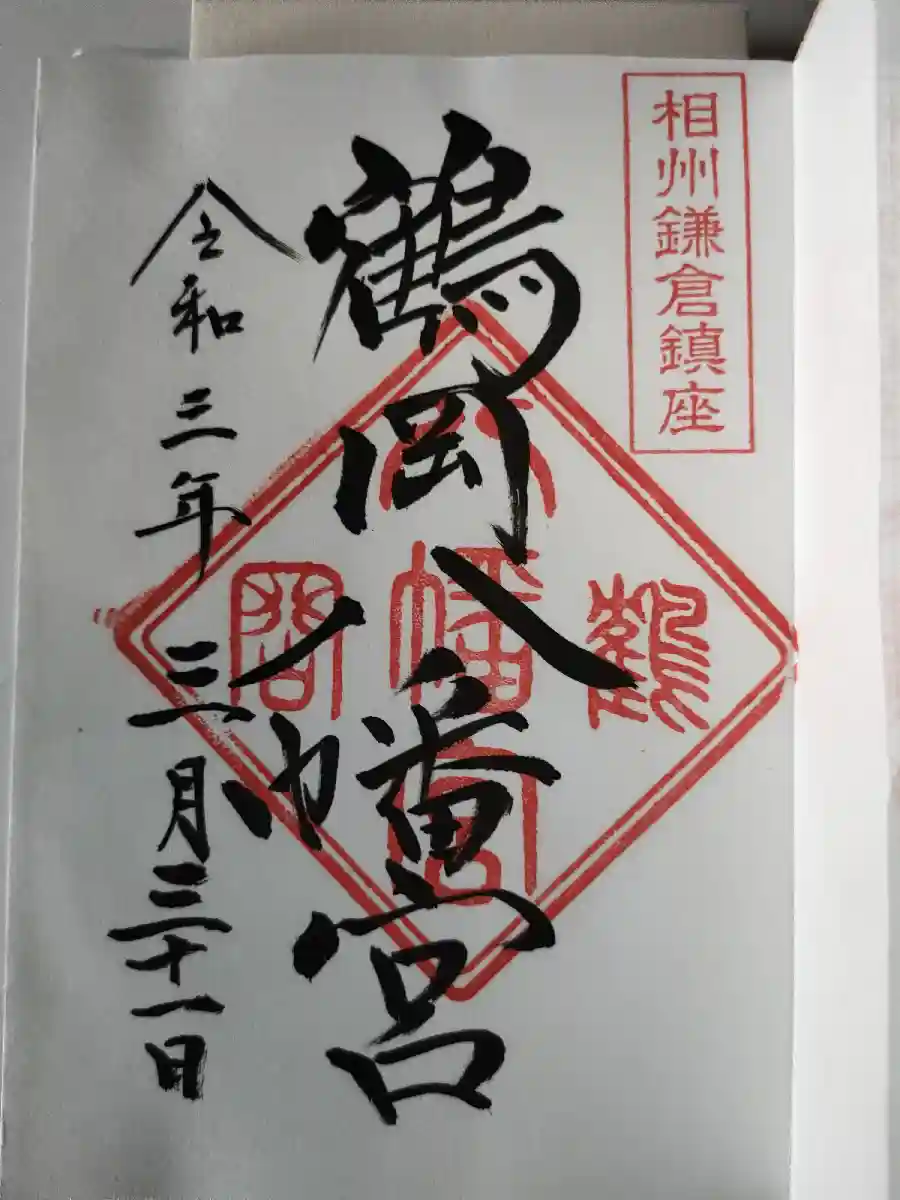 相州鎌倉鎮座
鶴岡八幡宮
鶴
岡
八
幡
宮
令和三年三月三十一日